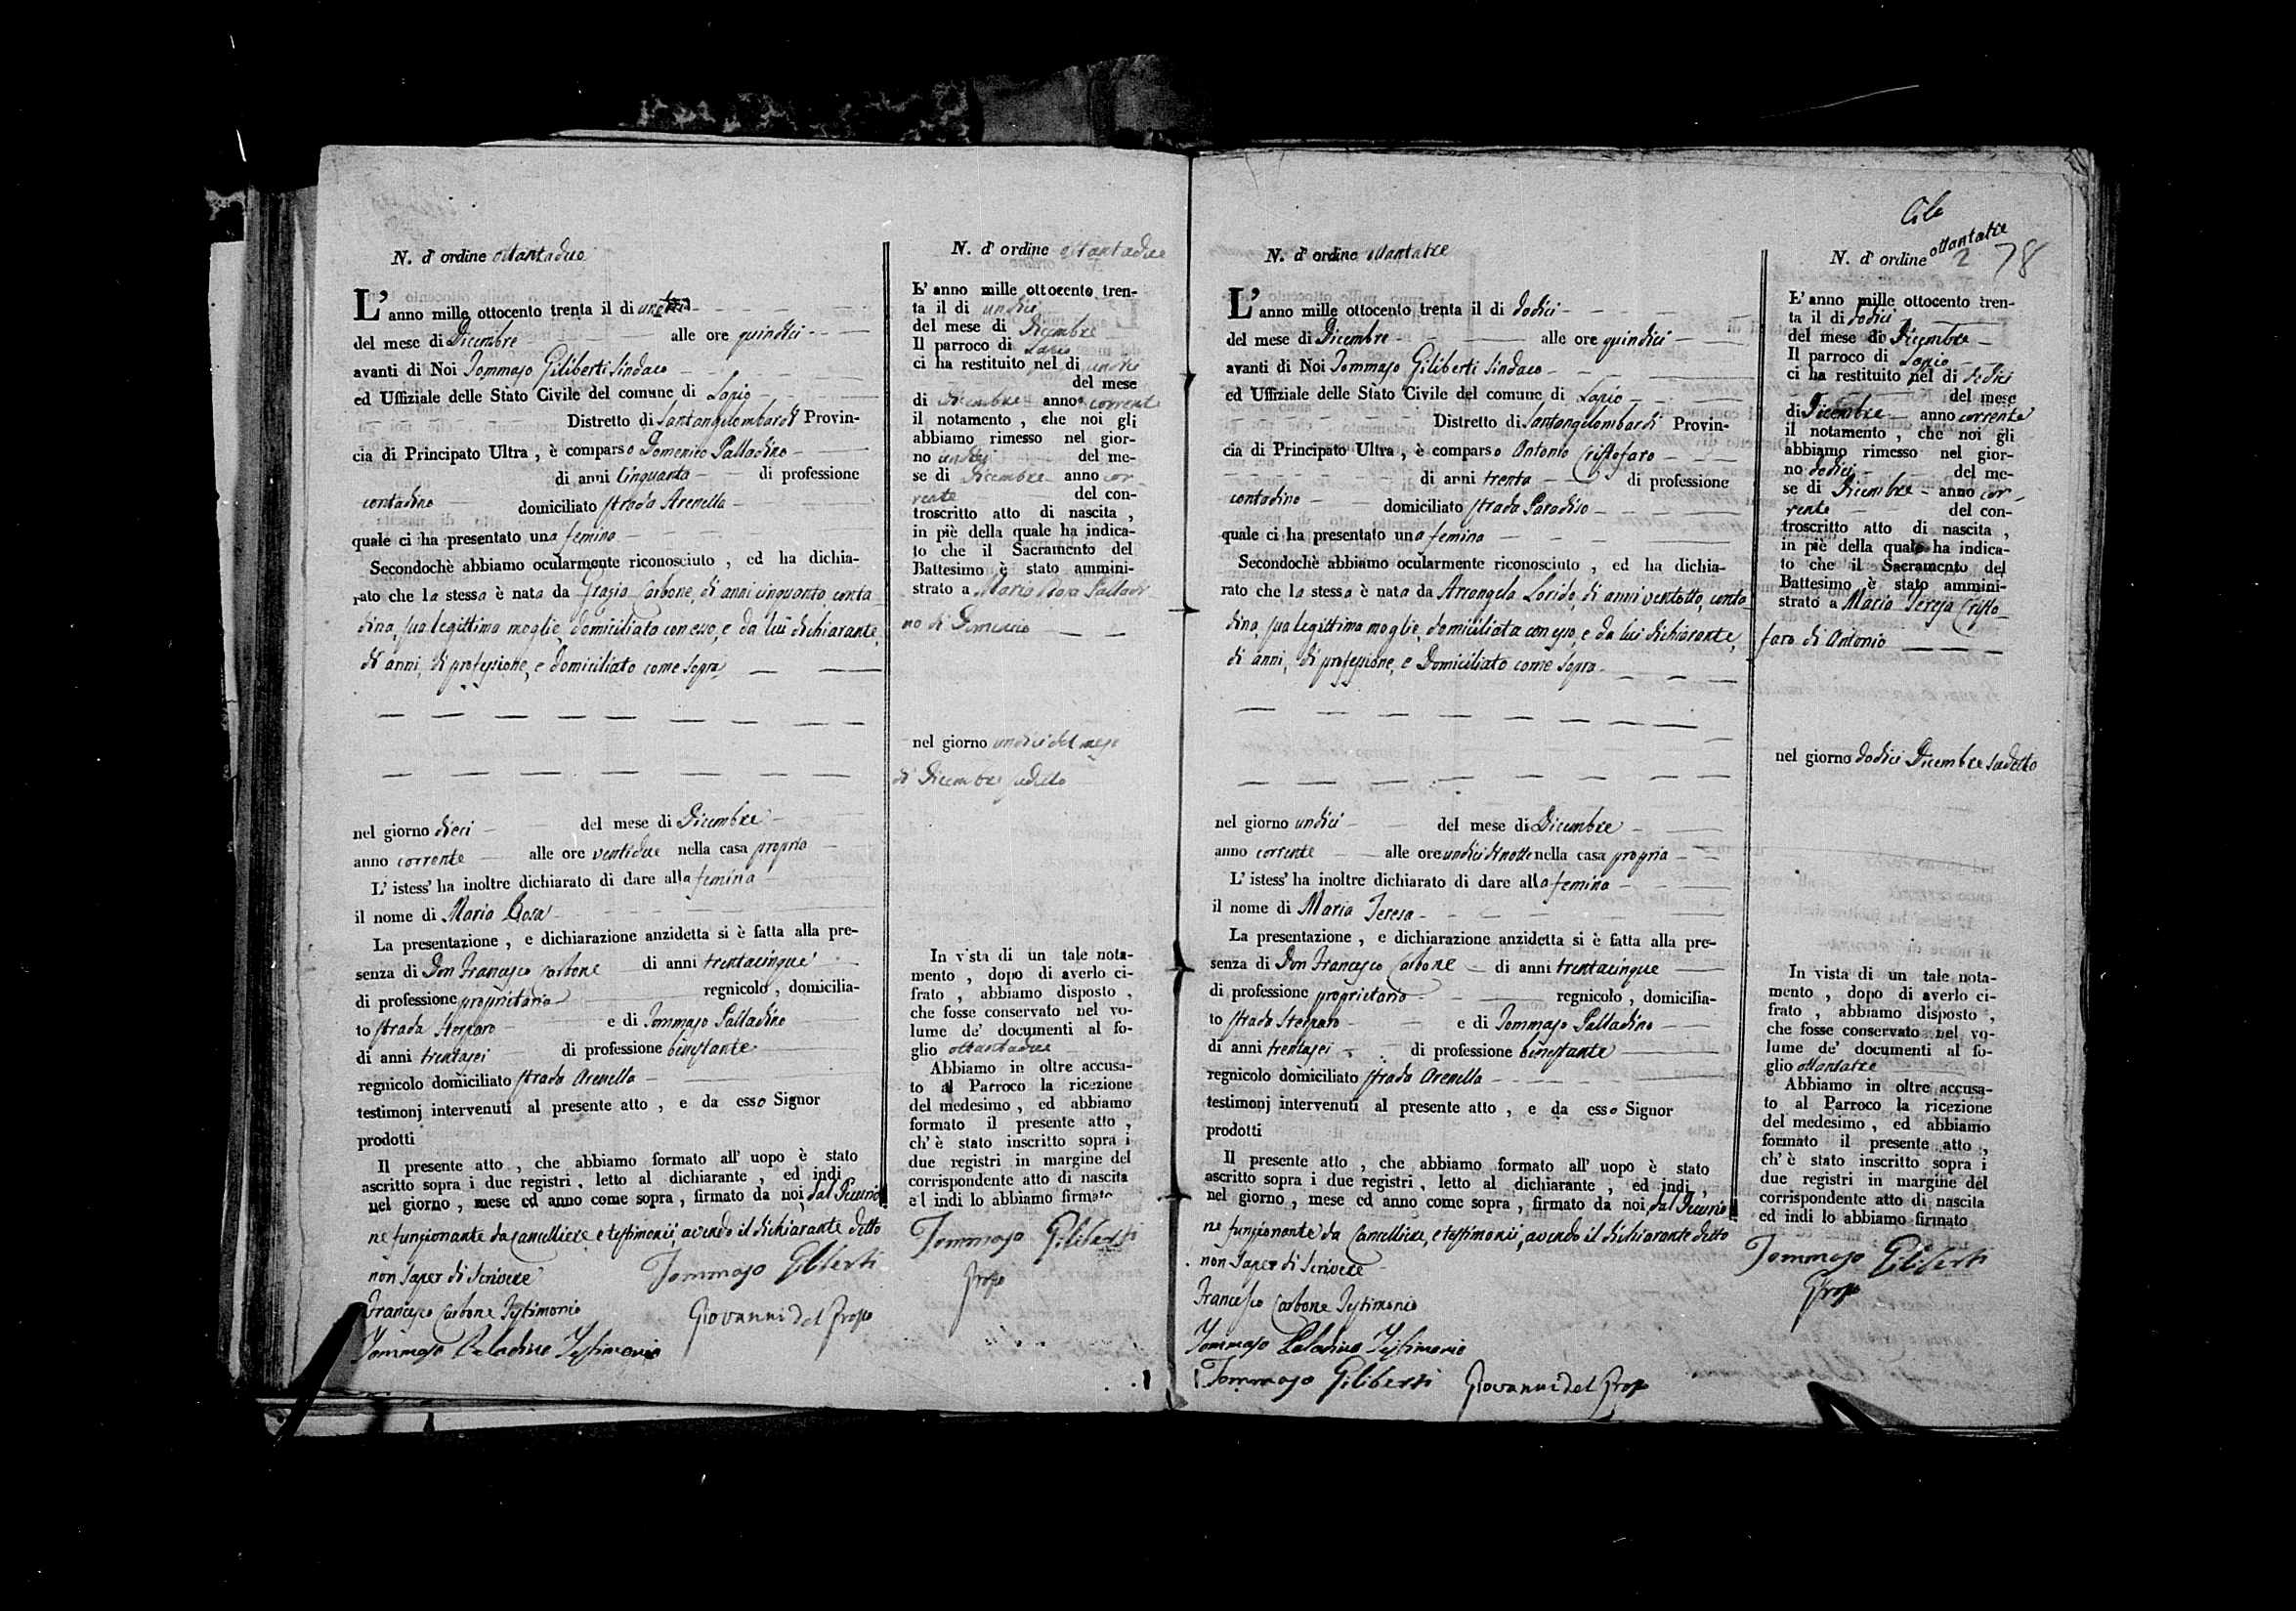 N. d' ordine ottantadue
L' anno mille ottocento trenta il di
del mese di Dicembre alle ore quindici
avanti di Noi Tommaso Giliberti Sindaco
ed Uffiziale delle Stato Civile del comune di Lapio
Distretto di Santangelombardi Provin-
cia di Principato Ultra , è comparso Domenico Palladino
di anni Cinquanta di professione
contadino domiciliato strada Arenella
quale ci ha presentato una femina
Secondochè abbiamo ocularmente riconosciuto , ed ha dichia-
rato che la stessa è nata da Grazia Carbone, di anni cinquanta, conta
dina, sua legittima moglie, domiciliata con esso, e da lui dichiarante,
di anni, di professione, e domiciliato come sopra
nel giorno dieci del mese di Dicembre
anno corrente alle ore ventidue nella casa propria
L' istess' ha inoltre dichiarato di dare alla femina
il nome di Maria Rosa
La presentazione , e dichiarazione anzidetta si è fatta alla pre-
senza di Don Francesco Carbone di anni trentacinque
di professione proprietario regnicolo , domicilia-
to strada e di Tommaso Palladino
di anni trentasei di professione benestante
regnicolo domiciliato strada Arenella
testimonj intervenuti al presente atto , e da esso Signor
prodotti
Il presente atto , che abbiamo formato all' uopo è stato
ascritto sopra i due registri , letto al dichiarante , ed indi
nel giorno , mese ed anno come sopra , firmato da noi, dal Decurio
ne funzionante da Cancelliere, e testimonii, avendo il dichiarante detto
non saper di scrivere
Tommaso Giliberti
Francesco Carbone Testimonio
Giovanni del Grosso
Tommaso Paladino Testimonio
N. d' ordine ottantadue
L' anno mille ottocento tren-
ta il di undici
del mese di Dicembre
Il parroco di Lapio
ci ha restituito nel di undici
del mese
di Dicembre anno corrente
il notamento , che noi gli
abbiamo rimesso nel gior-
no undici del me-
se di Dicembre anno cor-
rente del con-
troscritto atto di nascita ,
in piè della quale ha indica-
to che il Sacramento del
Battesimo è stato ammini-
strato a Maria Rosa Palladi
no di Domenico
nel giorno undici del mese
di Dicembre sudetto
In vista di un tale nota-
mento , dopo di averlo ci-
frato , abbiamo disposto ,
che fosse conservato nel vo-
lume de' documenti al fo-
glio ottantadue
Abbiamo in oltre accusa-
to al Parroco la ricezione
del medesimo , ed abbiamo
formato il presente atto ,
ch' è stato inscritto sopra i
due registri in margine del
corrispondente atto di nascita
ed indi lo abbiamo firmato
Tommaso Giliberti
Grosso
N. d' ordine ottantatre
L' anno mille ottocento trenta il di dodici
del mese di Dicembre alle ore quindici
avanti di Noi Tommaso Giliberti Sindaco
ed Uffiziale delle Stato Civile del comune di Lapio
Distretto di Santangelombardi Provin-
cia di Principato Ultra , è comparso Antonio Cristofaro
di anni trenta di professione
contadino domiciliato strada Paradiso
quale ci ha presentato una femina
Secondochè abbiamo ocularmente riconosciuto , ed ha dichia-
rato che la stessa è nata da Arcangela Lorido, di anni ventotto, conta
dina, sua legittima moglie, domiciliata con esso, e da lui dichiarante,
di anni, di professione, e Domiciliato come sopra
nel giorno undici del mese di Dicembre
anno corrente alle ore undici di notte nella casa propria
L' istess' ha inoltre dichiarato di dare alla femina
il nome di Maria Teresa
La presentazione , e dichiarazione anzidetta si è fatta alla pre-
senza di Don Francesco Carbone di anni trentacinque
di professione proprietario regnicolo , domicilia-
to strada e di Tommaso Palladino
di anni trentasei di professione benestante
regnicolo domiciliato strada Arenella
testimonj intervenuti al presente atto , e da esso Signor
prodotti
Il presente atto , che abbiamo formato all' uopo è stato
ascritto sopra i due registri , letto al dichiarante , ed indi ,
nel giorno , mese ed anno come sopra , firmato da noi, dal Decurio
ne funzionante da Cancelliere, e testimonii, avendo il dichiarante detto
non saper di scrivere
Francesco Carbone Testimonio
Tommaso Paladino Testimonio
Tommaso Giliberti Giovanni del Grosso
N. d' ordine ottantatre
2 78
L' anno mille ottocento tren-
ta il di dodici
del mese di Dicembre
Il parroco di Lapio
ci ha restituito nel di dodici
del mese
di Dicembre anno corrente
il notamento , che noi gli
abbiamo rimesso nel gior-
no dodici del me-
se di Dicembre anno cor-
rente del con-
troscritto atto di nascita ,
in piè della quale ha indica-
to che il Sacramento del
Battesimo è stato ammini-
strato a Maria Teresa Cristo-
faro di Antonio
nel giorno dodici Dicembre sudetto
In vista di un tale nota-
mento , dopo di averlo ci-
frato , abbiamo disposto ,
che fosse conservato nel vo-
lume de' documenti al fo-
glio ottantatre
Abbiamo in oltre accusa-
to al Parroco la ricezione
del medesimo , ed abbiamo
formato il presente atto ,
ch' è stato inscritto sopra i
due registri in margine del
corrispondente atto di nascita
ed indi lo abbiamo firmato
Tommaso Giliberti
Grosso